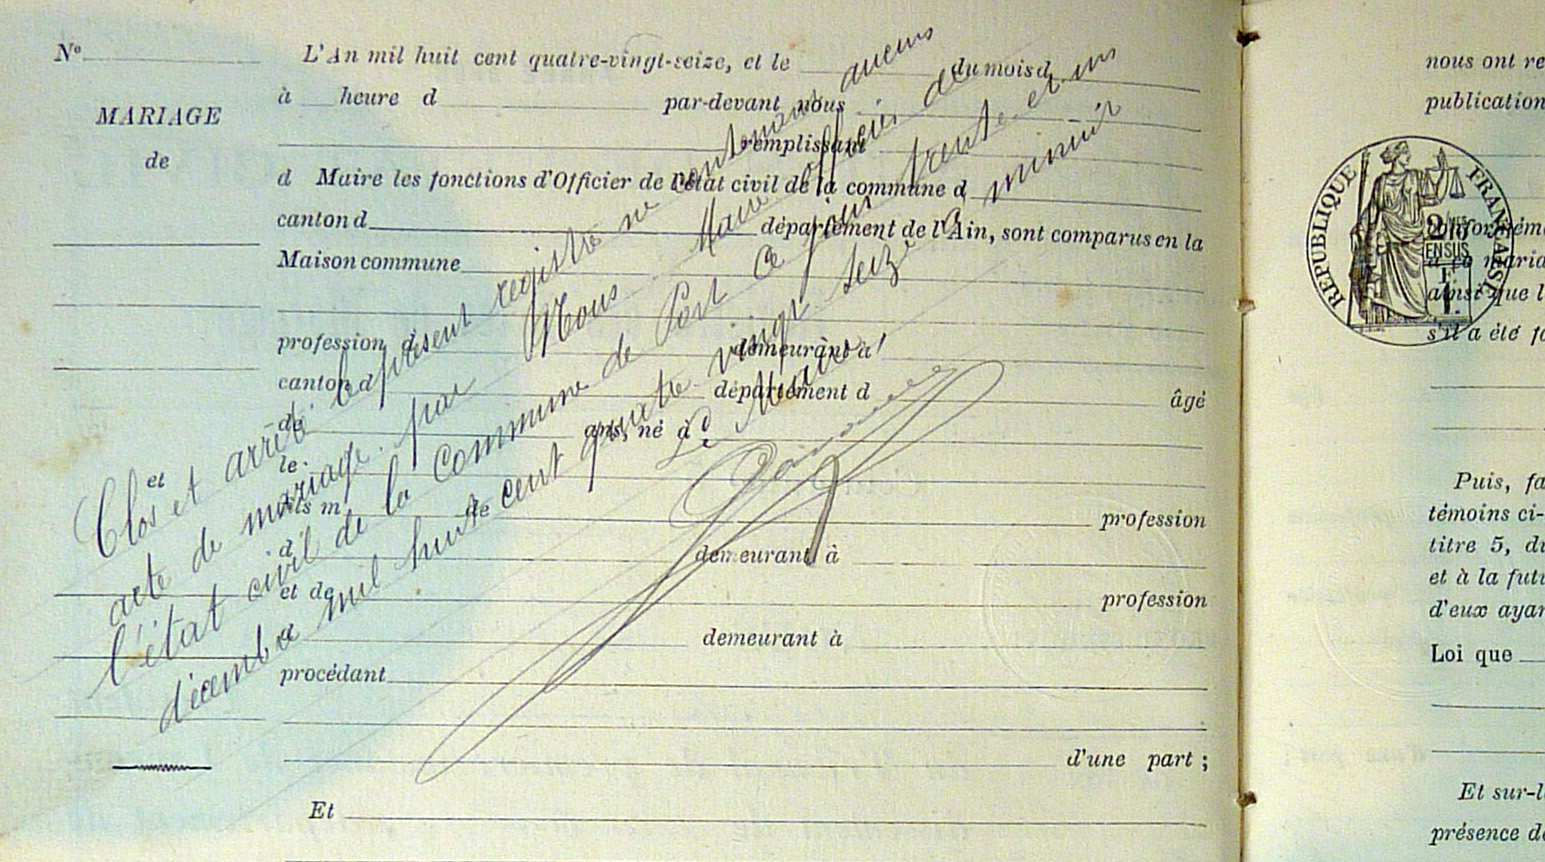 N°
MARIAGE
de
et
L'An mil huit cent quatre-vingt-seize, et le du mois d
à heure d par-devant nous
remplissant
d Maire les fonctions d'Officier de l'état civil de la commune d
canton d département de l'Ain, sont comparus en la
Maison commune
profession d demeurant à
canton d département d âgé
de ans, né à
le
fils m de profession
d demeurant à
et de profession
d demeurant à
procédant
d'une part ;
Et
Clos et arrêté le présent registre ne contenant aucuns
acte de mariage par Nous Maire officier de
l'état civil de la Commune de Port ce jour trente et un
décembre mil huit cent quatre vingt seize à minuit
Le Maire
nous ont re
publication
RÉPUBLIQUE FRANÇAISE
2/10
EN SUS
1 F.
conformém
à ce maria
ainsi que l
s'il a été fo
Puis, fa
témoins ci-
titre 5, du
et à la futu
d'eux ayan
Loi que
Et sur-l
présence de